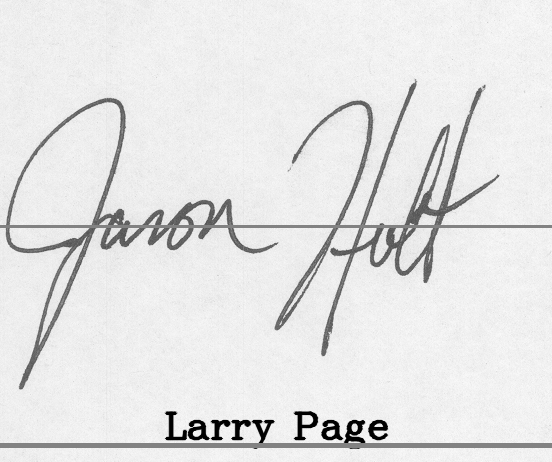 Jason Holt
Larry Page